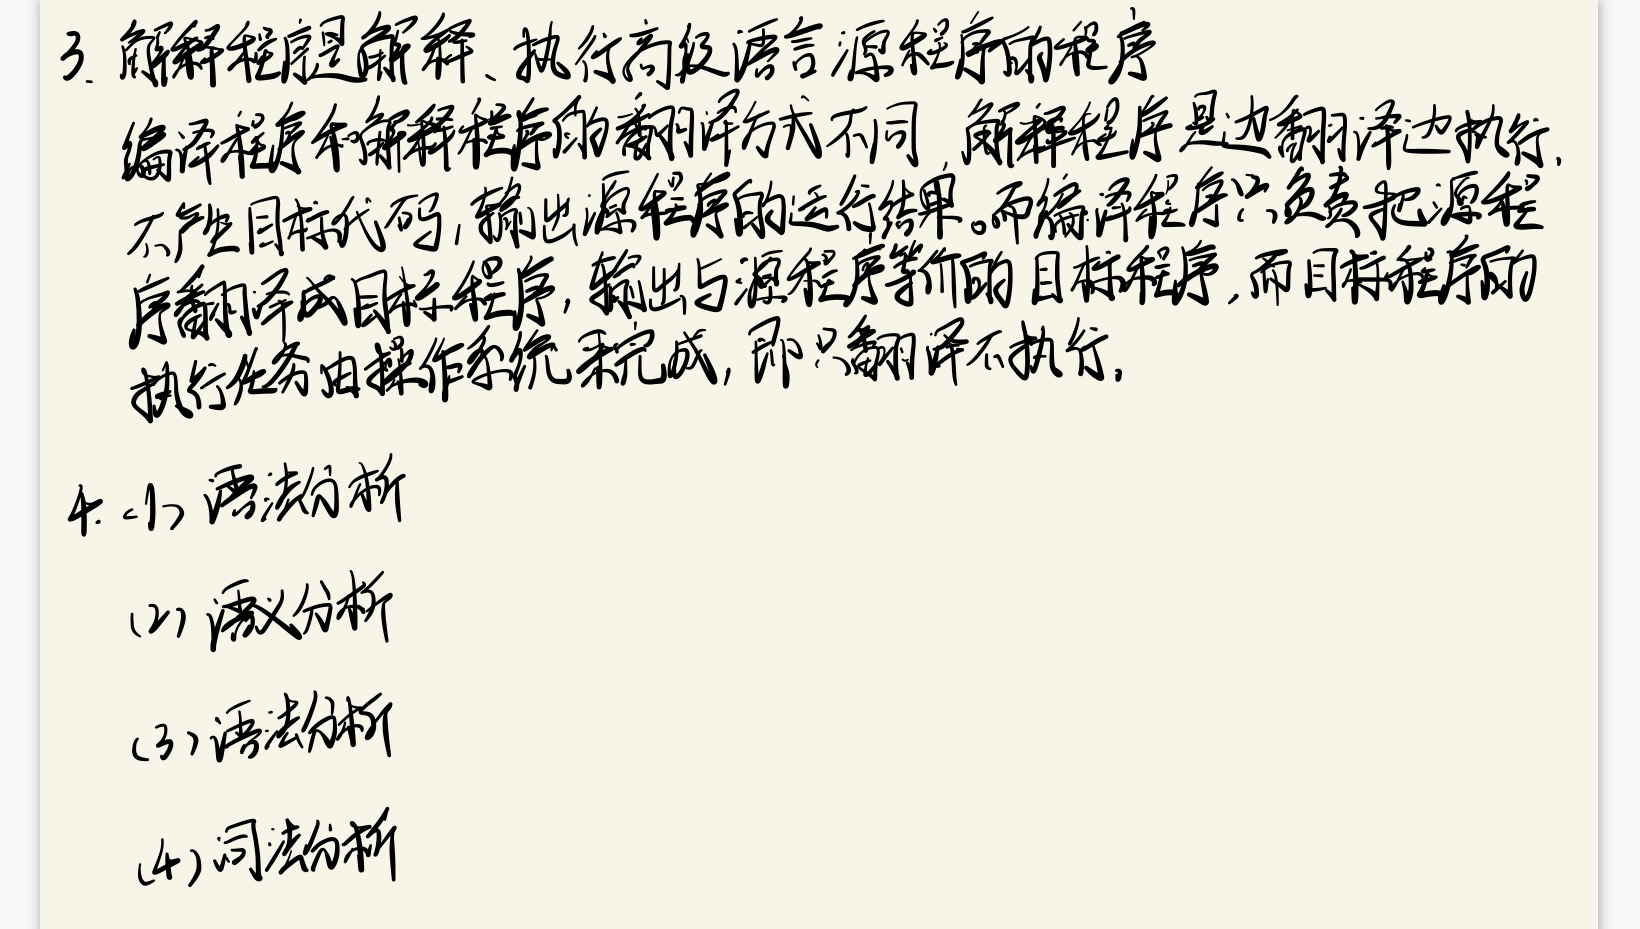 3. 解释程序是解释、执行高级语言源程序的程序
编译程序和解释程序的翻译方式不同,解释程序是边翻译边执行,
不产生目标代码,输出源程序的运行结果。而编译程序只负责把源程
序翻译成目标程序,输出与源程序等价的目标程序,而目标程序的
执行任务由操作系统来完成,即只翻译不执行.
4. (1) 语法分析
(2) 语义分析
(3) 语法分析
(4) 词法分析